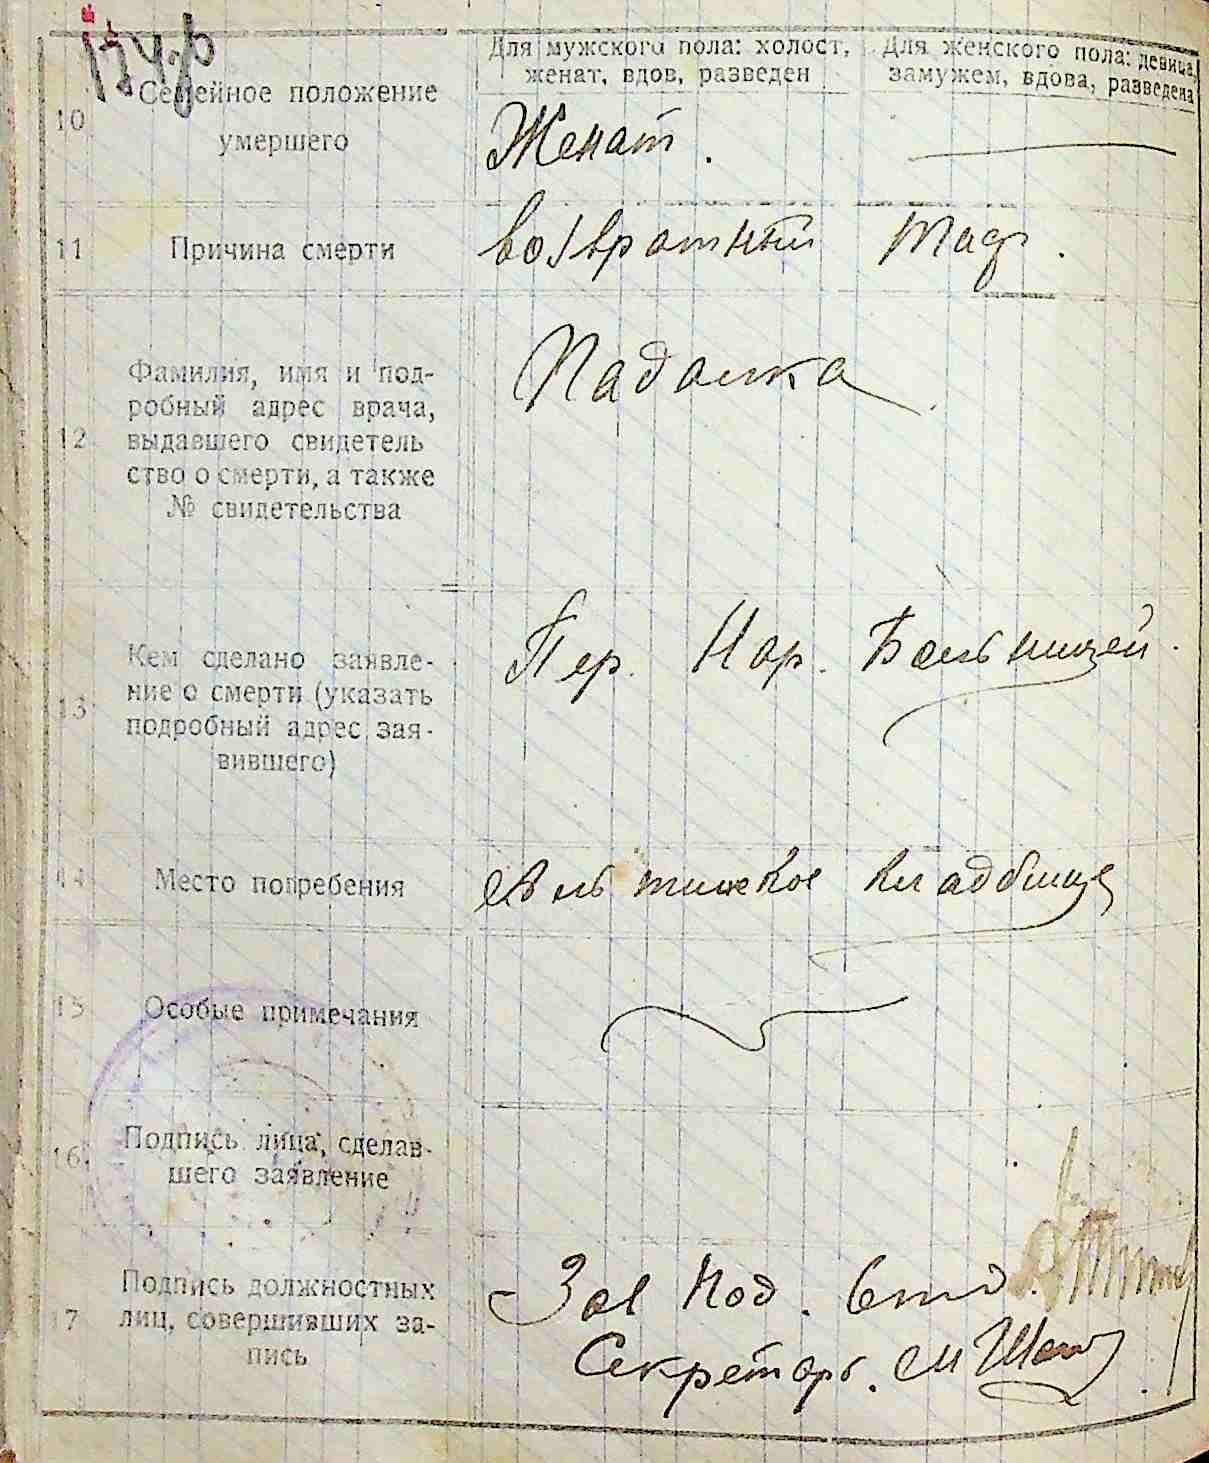 Для мужского пола: холост,
женат, вдов, разведен
Для женского пола: девица,
замужем, вдова, разведена
10
Семейное положение
умершего
Женат.
11
Причина смерти
возвратный тиф.
12
Фамилия, имя и под-
робный адрес врача,
выдавшего свидетель
ство о смерти, а также
№ свидетельства
Падалка
13
Кем сделано заявле-
ние о смерти (указать
подробный адрес зая-
вившего)
Пер. Нар. Больницей.
14
Место погребения
кладбище
15
Особые примечания
16.
Подпись лица, сделав-
шего заявление
17
Подпись должностных
лиц, совершивших за-
пись
Зав Под. Отд.
Секретарь. М